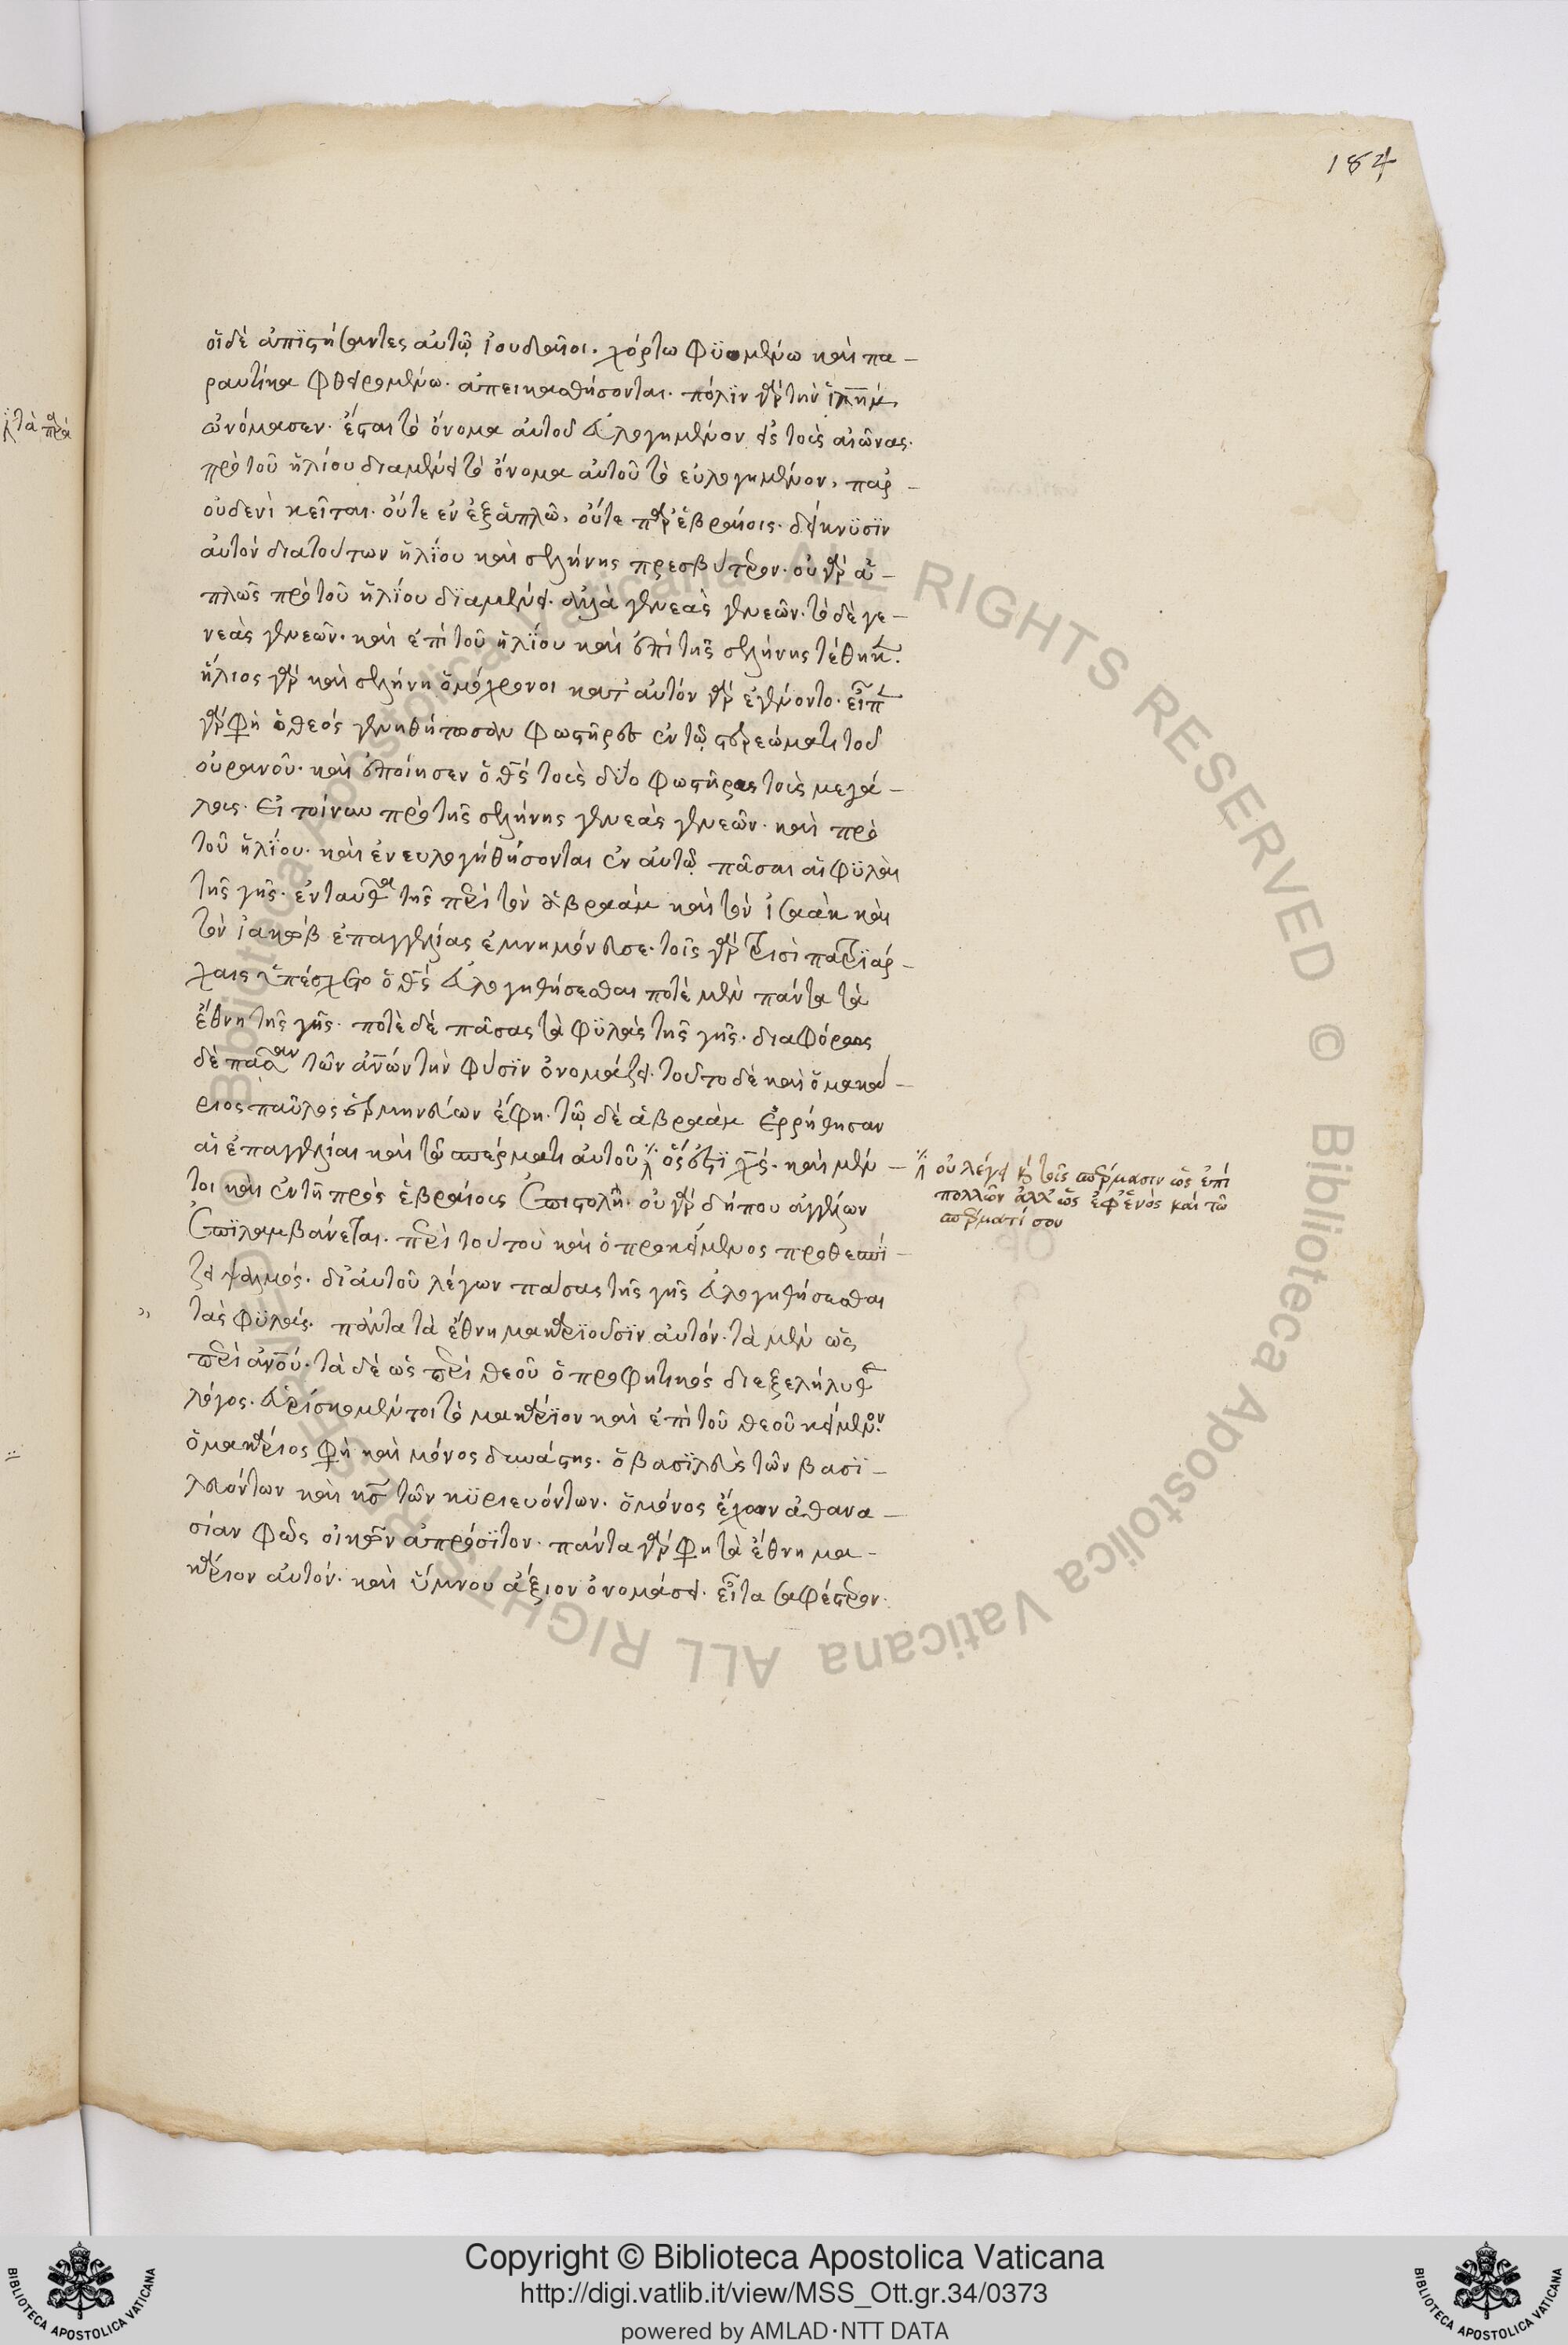 184
οἱ δὲ ἀπιστήσαντες αὐτῷ ἰουδαῖοι. χόρτω φϋομένω καὶ πα –
ραυτίκα φθειρομένω. ἀπεικασθήσονται. πόλϊν γὰρ τὴν
ὠνόμασεν. ἔσται τὸ ὄνομα αὐτοῦ εὐλογημένον εἰς τοὺς αἰῶνας.
πρὸ τοῦ ἡλίου διαμένει τὸ ὄνομα αὐτοῦ τὸ εὐλογημένον, παρ –
οὐδενὶ κεῖται. οὔτε ἐν ἑξαπλῶ, οὔτε παρ' ἑβραίοις. δείκνϋσϊν
αὐτὸν διατούτων ἡλίου καὶ σελήνης πρεσβύτερον. οὐ γὰρ ἁ –
πλῶς πρὸ τοῦ ἡλίου δϊαμένει. ἀλλὰ γενεὰς γενεῶν. τὸ δὲ γε –
νεὰς γενεῶν. καὶ ἐπὶ τοῦ ἡλΐου καὶ ἐπὶ τῆς σελήνης τέθηκ.
ἥλιος γὰρ καὶ σελήνη ὁμόχρονοι κατ' αὐτὸν γὰρ ἐγένοντο. εἶπ
γὰρ φη ὁ θεός γενηθήτωσαν φωστῆρες ἐν τῷ στερεώματι τοῦ
οὐρανοῦ. καὶ ἐποίησεν ὁ θς τοὺς δύο φωστῆρας τοὺς μεγά –
λους. εἰ τοίνυν πρὸ τῆς σελήνης γενεὰς γενεῶν. καὶ πρὸ
τοῦ ἡλίου. καὶ ἐνευλογηθήσονται ἐν αὐτῷ πᾶσαι αἱ φϋλαὶ
τῆς γῆς. ἐνταῦθα τῆς περὶ τὸν ἀβραὰμ καὶ τὸν ἰσαὰκ καὶ
τὸν ἰακὼβ ἐπαγγελίας ἐμνημόνευσε. τοῖς γὰρ τρισὶ πατρϊάρ –
χαις ὑπέσχετο ὁ θς εὐλογηθήσεσθαι ποτὲ μὲν πάντα τὰ
ἔθνη τῆς γῆς. ποτὲ δὲ πᾶσας τὰ φϋλὰς τῆς γῆς. διαφόρως
δὲ πᾶσαν τῶν ἀνων τὴν φύσϊν ὀνομάζει. τοῦτο δὲ καὶ ὁ μακά –
ριος παῦλος ἑρμηνεύων ἔφη. τῷ δὲ ἀβραὰμ ἐρρήθησαν
αἱ ἐπαγγελίαι καὶ τῷ σπέρματι αὐτοῦ ὅς ἐστϊ χς. καὶ μέν –
τοι καὶ ἐν τῇ πρὸς ἑβραίους ἐπιστολῇ. οὐ γὰρ δήπου ἀγγέλων
ἐπϊλαμβάνεται. περὶ τούτου καὶ ὁ προκείμενος προθεσπί –
ζει ψαλμός. δι' αὐτοῦ λέγων πάσας τῆς γῆς εὐλογηθήσεσθαι
τὰς φϋλάς. πάντα τὰ ἔθνη μακαρϊοῦσϊν αὐτόν. τὰ μὲν ὡς
περὶ ἀνου. τὰ δὲ ὡς περὶ θεοῦ ὁ προφητικὸς διεξελήλυθ
λόγος. εὑρίσκομέν τοι τὸ μακάρϊον καὶ ἐπὶ τοῦ θεοῦ κείμενον.
ὁ μακάριος φη καὶ μόνος δυνάστης. ὁ βασϊλεὺς τῶν βασϊ –
λευόντων καὶ κς τῶν κϋριευόντων. ὁ μόνος ἔχων ἀθανα –
σίαν φῶς οἰκῶν ἀπρόσϊτον. πάντα γὰρ φη τὰ ἔθνη μα –
κάριον αὐτόν. καὶ ὕμνου ἄξιον ὀνομάσει. εἶτα σαφέστερον.
οὐ λέγει καὶ τοῖς σπέρμασιν ὡς ἐπὶ
πολλῶν ἀλλ' ὡς ἐφ' ἑνὸς καὶ τῶ
σπέρματί σου
Copyright © Biblioteca Apostolica Vaticana
http://digi.vatlib.it/view/MSS_Ott.gr.34/0373
powered by AMLAD·NTT DATA